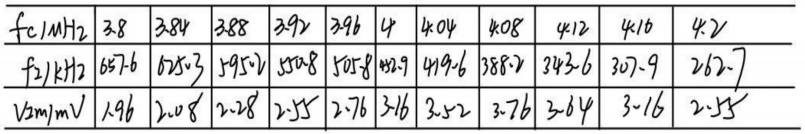 fc/MHz 3.8 3.84 3.88 3.92 3.96 4 4.04 4.08 4.12 4.16 4.2
f2/kHz 657.6 625.3 595.2 550.8 505.8 452.9 419.6 388.2 343.6 307.9 262.7
V2m/mV 1.96 2.08 2.28 2.55 2.76 3.16 3.52 3.76 3.64 3.16 2.55